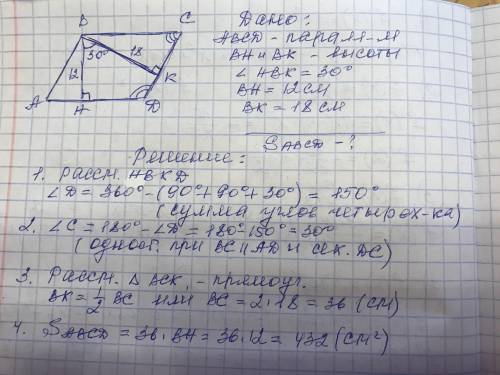 B
C
Дано:
ABCD - парал-м
BH и BK - высоты
∠HBK = 30°
BH = 12 см
BK = 18 см
30°
18
12
K
A
H
D
SABCD - ?
Решение:
1. Рассм. HBKD
∠D = 360° - (90° + 90° + 30°) = 150°
(сумма углов четырех-ка)
2. ∠C = 180° - ∠D = 180° - 150° = 30°
(одност. при BC || AD и сек. DC)
3. Рассм. △ BCK, - прямоуг.
BK = 1/2 BC или BC = 2 · 18 = 36 (см)
4. SABCD = 36 · BH = 36 · 12 = 432 (см²)